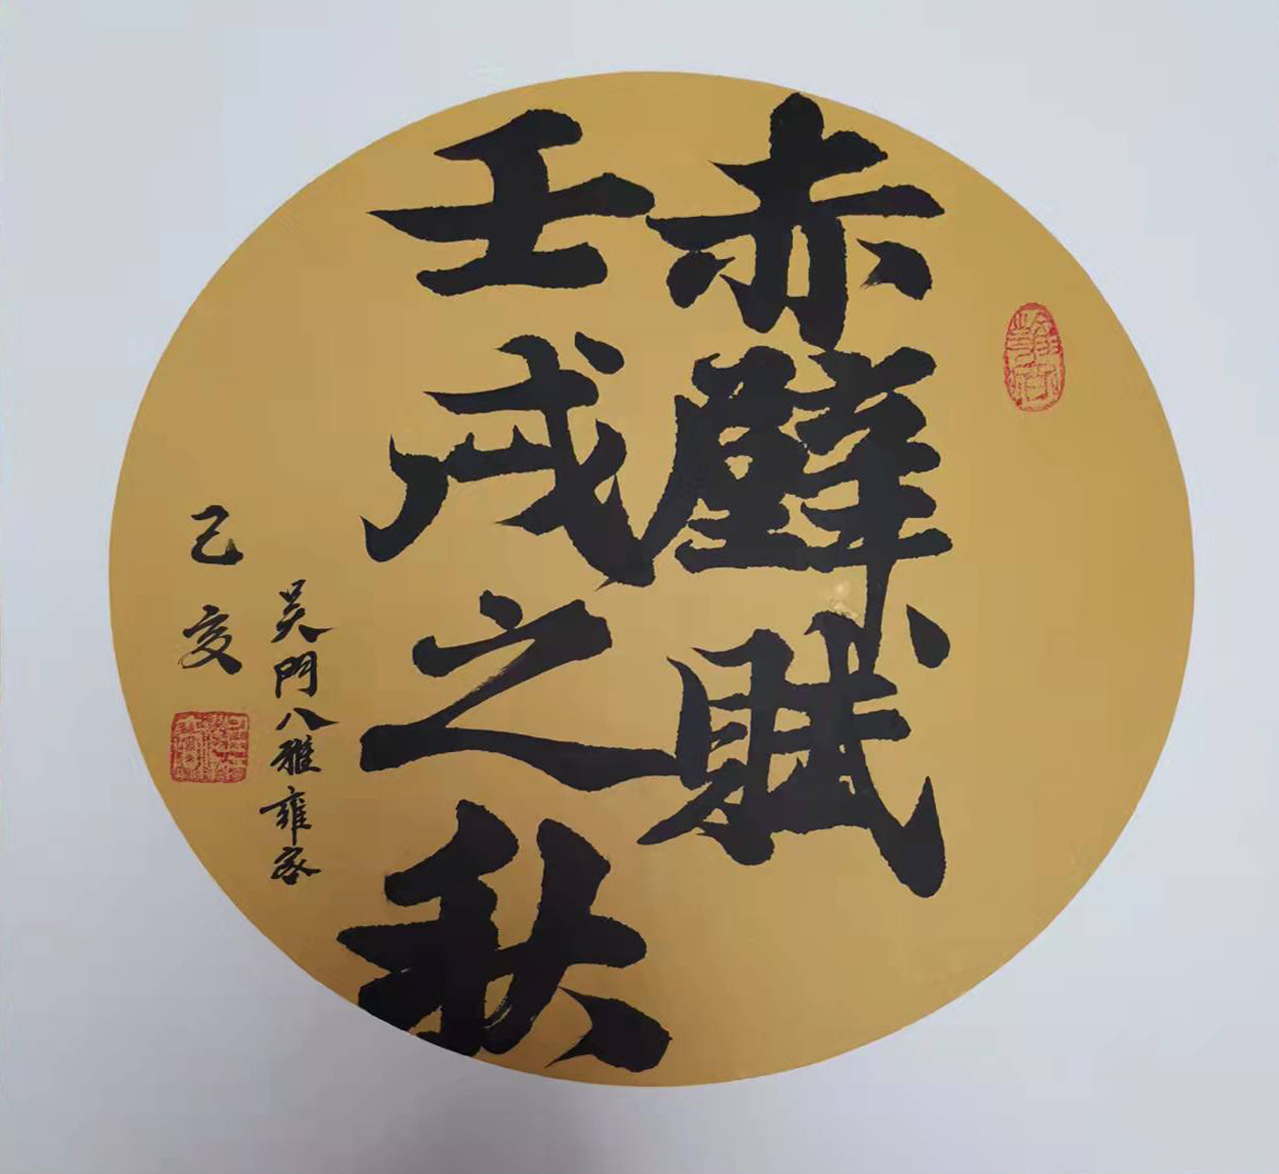 赤壁賦
壬戌之秋
吴門八雅雍容
己亥